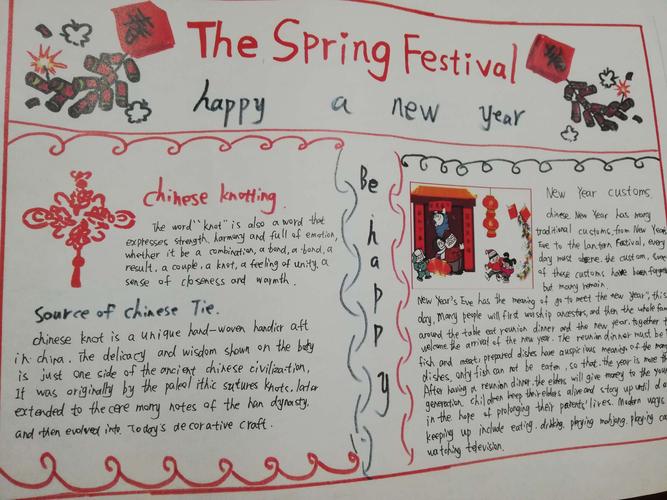 The Spring Festival
happy a new year
春
春
chinese knotting
The word "knot" is also a word that
expresses strength, harmony and full of emotion,
whether it be a combination, a bond, a bond, a
result, a couple, a knot, a feeling of unity, a
sense of closeness and warmth.
Source of chinese Tie.
chinese knot is a unique hand-woven handicr aft
in china. The delicacy and wisdom shown on the boty
is just one side of the ancient chinese civilization,
It was originally by the paleol ithic sutures knots, later
extended to the cere mony notes of the han dynasty,
and then evolved into Today's decorative craft.
Be happy
New Year customs.
chinese New Year has many
traditional customs, from New Year
Eve to the Lantern Festival, every
day must observe the custom, some
of these customs have been forgo
but many remain.
New Year's Eve has the meaning of "go to meet the new year", this
day, Many people will first worship ancestors, and then the whole fam
around the table eat reunion dinner and the new year, together t
welcome the arrival of the new year. The reunion dinner must be
fish and meat; prepared dishes have auspicious meaning of the
dishes, only fish can not be eaten, so that the year is more th
After having a reunion dinner, the elders will give money to the you
generation. Children keep their elders alive and stay up until da
in the hope of prolonging their parents' lives. Modern ways
keeping up include eating, drinking, playing mahjong, playing ca
watching television.